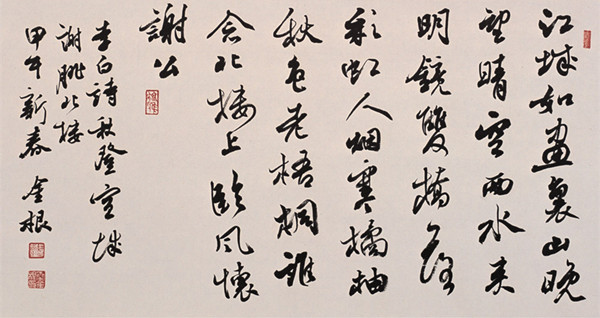 江城如畫裏山晚
望晴空兩水夾
明鏡雙橋落
彩虹人烟寒橘柚
秋色老梧桐誰
念北樓上臨風懷
謝公
李白詩秋登宣城
謝朓北樓
甲午新春 金根